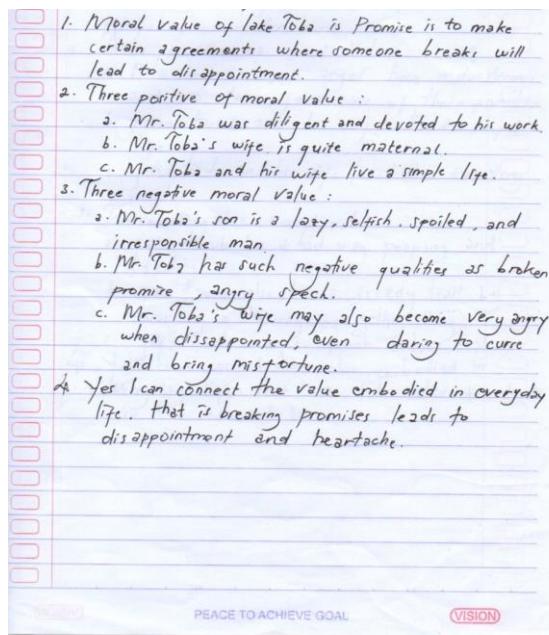 1. Moral value of lake Toba is Promise is to make
certain agreements where someone breaks will
lead to disappointment.
2. Three positive of moral value :
a. Mr. Toba was diligent and devoted to his work.
b. Mr. Toba's wife is quite maternal.
c. Mr. Toba and his wife live a simple life.
3. Three negative moral value :
a. Mr. Toba's son is a lazy, selfish, spoiled, and
irresponsible man
b. Mr. Toba has such negative qualities as broken
promise, angry spech.
c. Mr. Toba's wife may also become very angry
when dissappointed, even daring to curse
and bring misfortune.
4. Yes I can connect the value embodied in everyday
life. that is breaking promises leads to
disappointment and heartache.
PEACE TO ACHIEVE GOAL
VISION